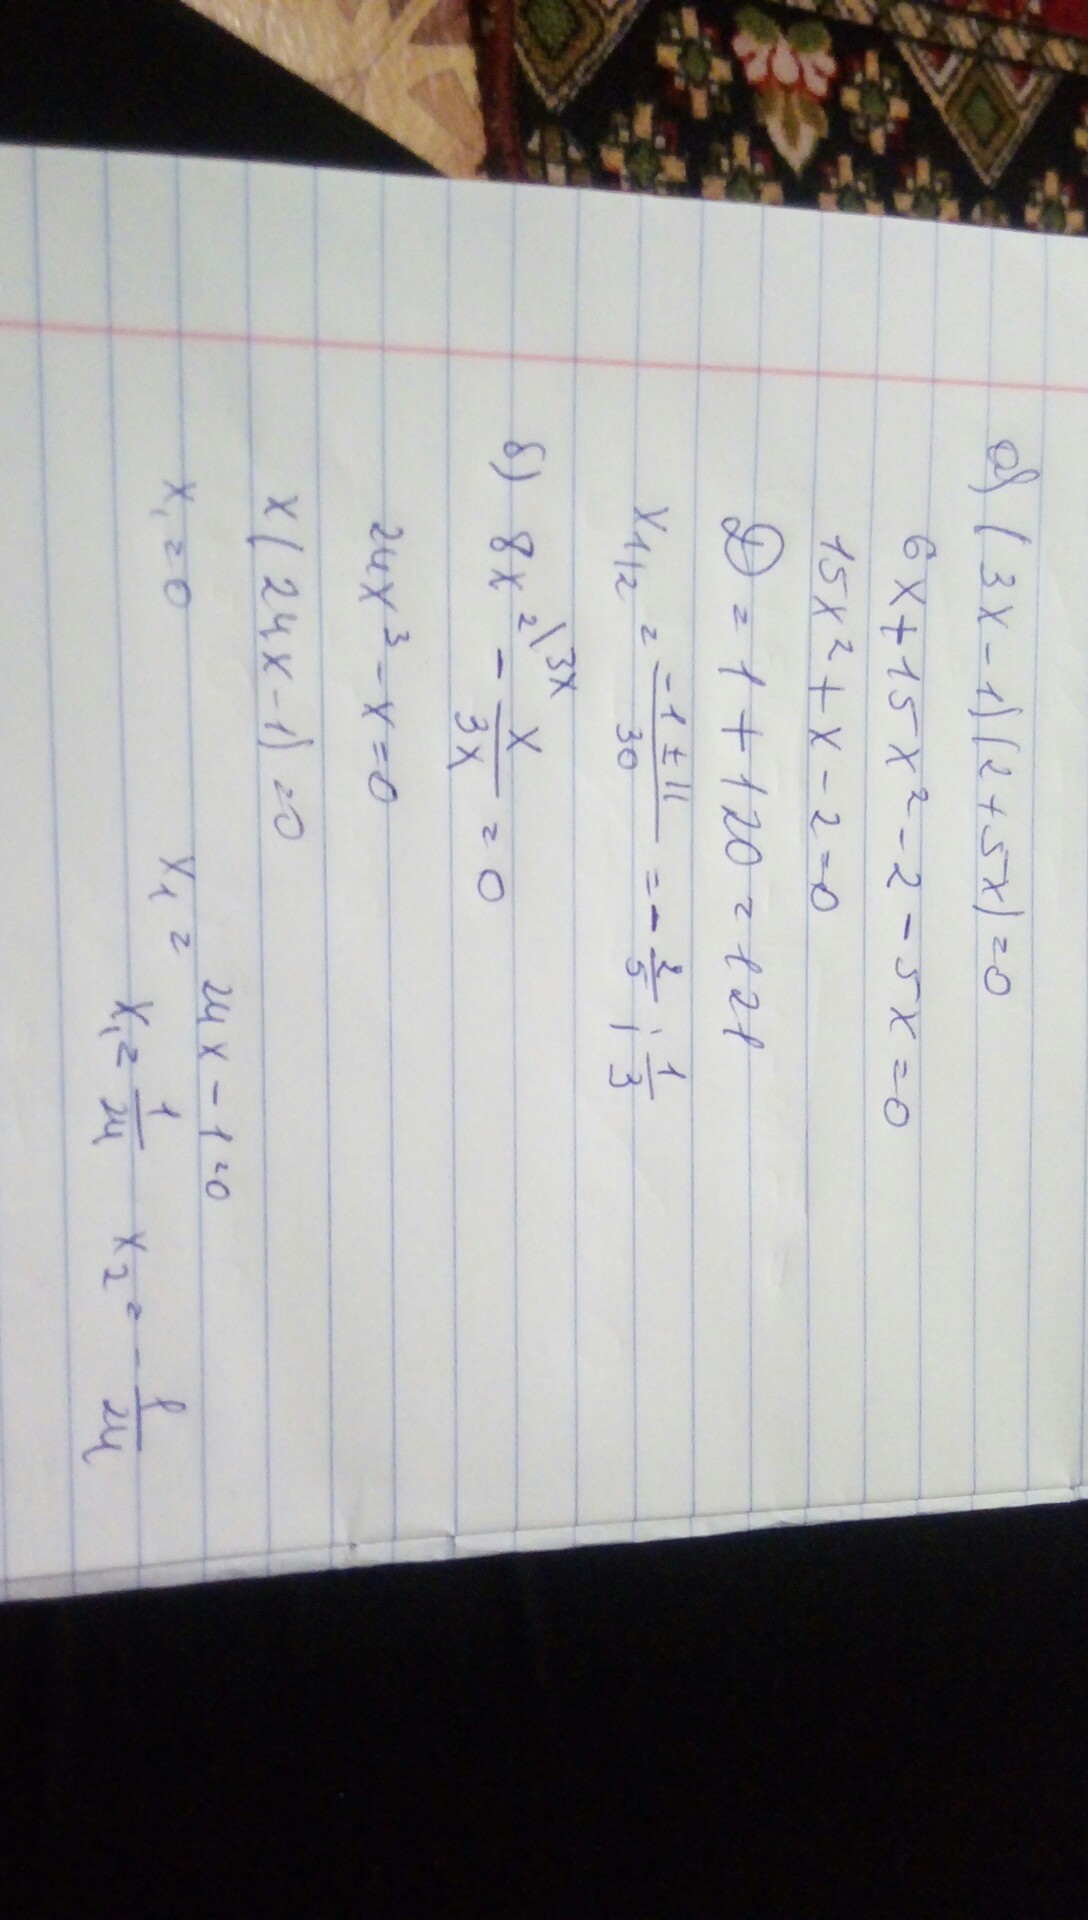 а) (3x-1)(2+5x)=0
6x+15x²-2-5x=0
15x²+x-2=0
D=1+120=121
x1/2 = (-1±11)/30 = -2/5; 1/3
б) 8x²\3x - x/3x = 0
24x³-x=0
x(24x-1)=0
x₁=0 24x-1=0
x₁=
x₁=1/24 x₂=-1/24